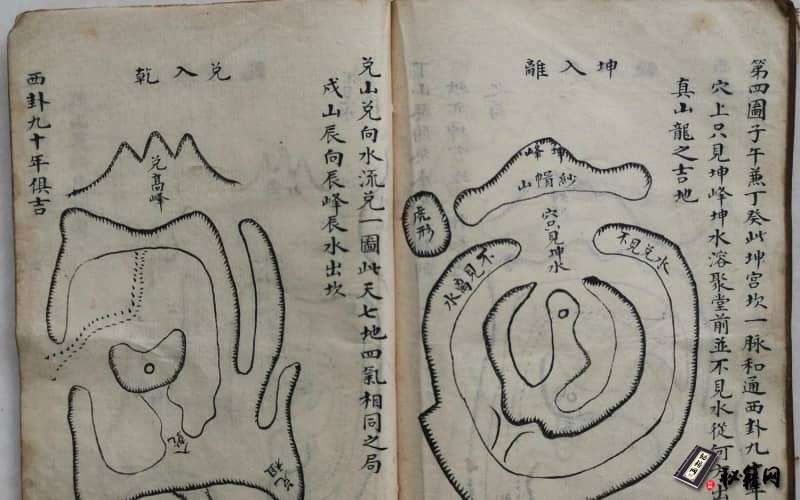 第四圖子午蒹丁癸此坤宮坎一脉和通西卦九年
穴上只見坤峰坤水溶聚堂前並不見水從何出
真山龍之吉地
坤入離
坤峰
紗帽山
虎形
穴只見坤水
不見兌水
不見离水
兌山兌向水流兌一圖此天七地四氣相同之局
戍山辰向辰峰辰水出坎
兌入乾
兌高峰
西卦九十年俱吉
秘籍网